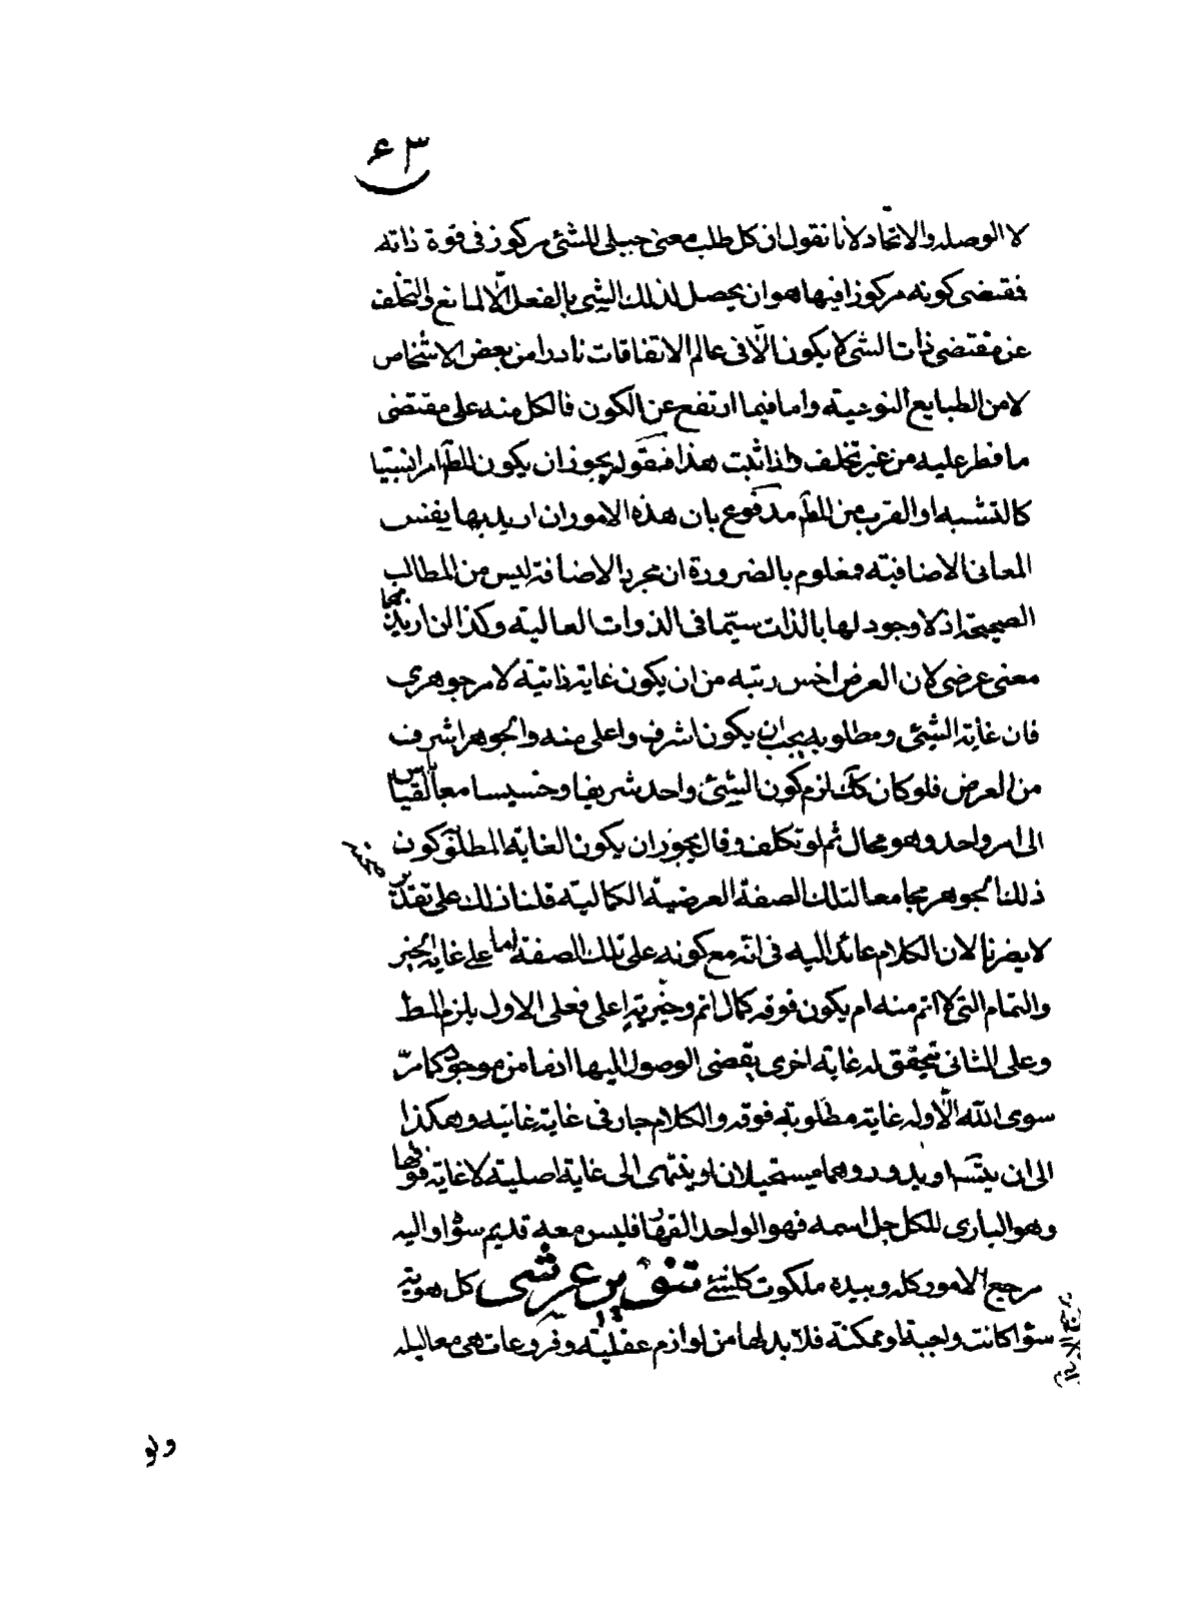 ٤٣
لا الوصلة والاتحاد لأنا نقول ان كل طلب معنى جبلى للشئ مركوز فى قوة ذاته
فمقتضى كونه مركوزا فيها هو ان يحصل لذلك الشئ بالفعل الّا لمانع والتخلف
عن مقتضى ذات الشئ لا يكون الّا فى عالم الاتفاقات نادرا من بعض الاشخاص
لا من الطبايع النوعية واما فيما ارتفع عن الكون فالكل منه على مقتضى
ما فطر عليه من غير تخلف واذا ثبت هذا فنقول يجوز ان يكون المط امرا نسبيا
كالتشبه او القرب من المط مدفوع بان هذه الامور ان اريد بها نفس
المعانى الاضافية فمعلوم بالضرورة ان مجرد الاضافة ليس من المطالب
الصحيحة اذ لا وجود لها بالذات سيّما فى الذوات العالية وكذا ان اريد بها
معنى عرضى لان العرض اخس رتبه من ان يكون غاية ذاتية لامر جوهرى
فان غاية الشئ ومطلوبه يجب ان يكون اشرف واعلى منه والجوهر اشرف
من العرض فلو كان كك لزم كون الشئ واحد شريفا وخسيسا معا بالقياس
الى امر واحد وهو محال ثم لو تكلف وقال يجوز ان يكون الغاية المطلوبة كون
ذلك الجوهر مجامعا لتلك الصفة العرضية الكمالية قلنا ذلك على تقدير
لا يضرنا لان الكلام عائد اليه فى انّه مع كونه على تلك الصفة اما على غاية الخير
والتمام التى لا اتم منه ام يكون فوقه كمال اتم وخيرية اعلى فعلى الاول يلزم المط
وعلى الثانى تحقق له غاية اخرى يقضى الوصول اليها اذ ما من موجود كما مرّ
سوى الله الّا وله غاية مطلوبة فوقه والكلام جار فى غاية غايته وهكذا
الى ان يتسـ او يدور وهما مستحيلان او ينتهى الى غاية اصلية لا غاية فوقها
وهو البارى للكل جل اسمه فهو الواحد القهار فليس معه قديم سواه واليه
مرجع الامور كله وبيده ملكوت كلشئ تنوير عرشى كل هوية
سواء كانت واجبة او ممكنة فلا بد لها من لوازم عقلية وفروعات هى معاليله
ولو